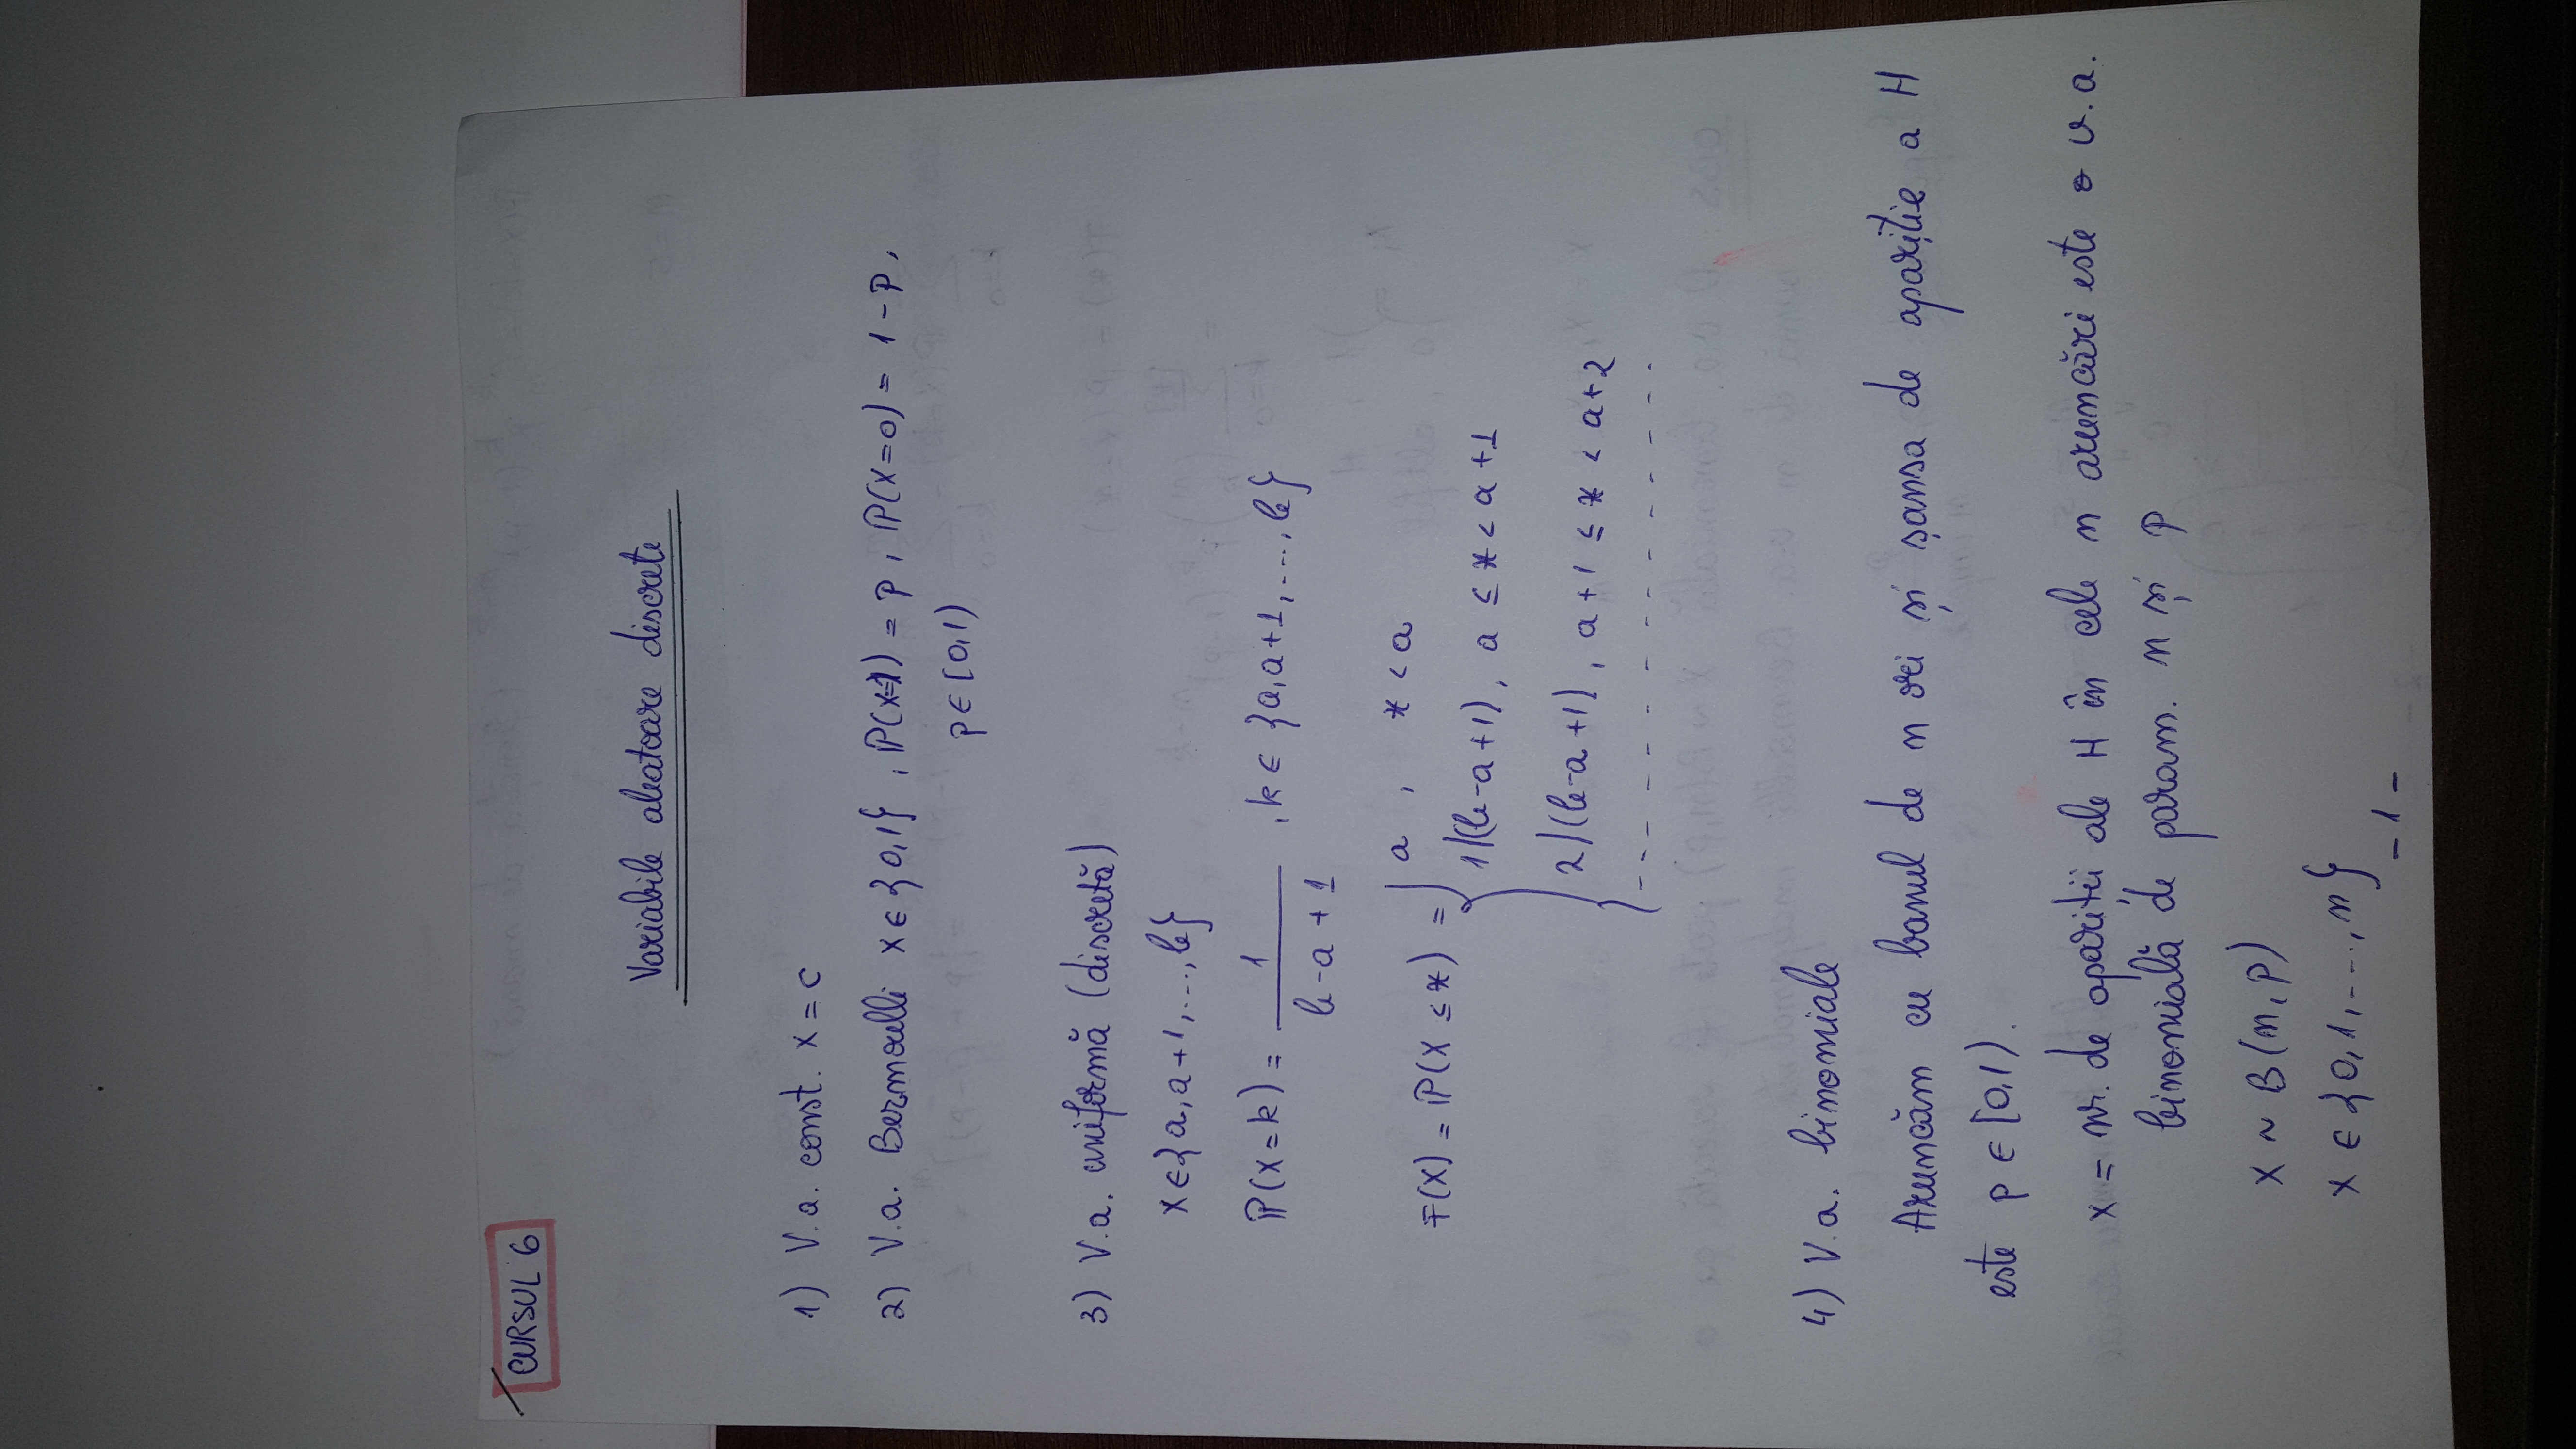 CURSUL 6
Variabile aleatoare discrete
1) V.a. const. X = c
2) V.a. Bernoulli X ∈ {0,1} , ℙ(X=1) = p , ℙ(X=0) = 1 - p ,
p ∈ [0,1)
3) V.a. uniformă (discretă)
X ∈ {a, a+1, ..., b}
ℙ(X=k) = 1 / (b-a+1) , k ∈ {a, a+1, ..., b}
F(X) = ℙ(X ≤ x) = { a , x < a
1/(b-a+1) , a ≤ x < a+1
2/(b-a+1) , a+1 ≤ x < a+2
- - - - - - - - - - - - - - -
4) V.a. binomiale
Aruncăm cu banul de n ori și șansa de apariție a H
este p ∈ [0,1).
X = nr. de apariții ale H în cele n aruncări este o v.a.
binomială de param. n și p
X ~ B(n,p)
X ∈ {0,1,...,n}
- 1 -